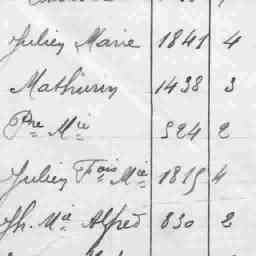 Julien Marie 1841 4
Mathurin 1438 3
Pre Mie 524 2
Julien Fois Mie 1815 4
Jh. Mie Alfred 830 2